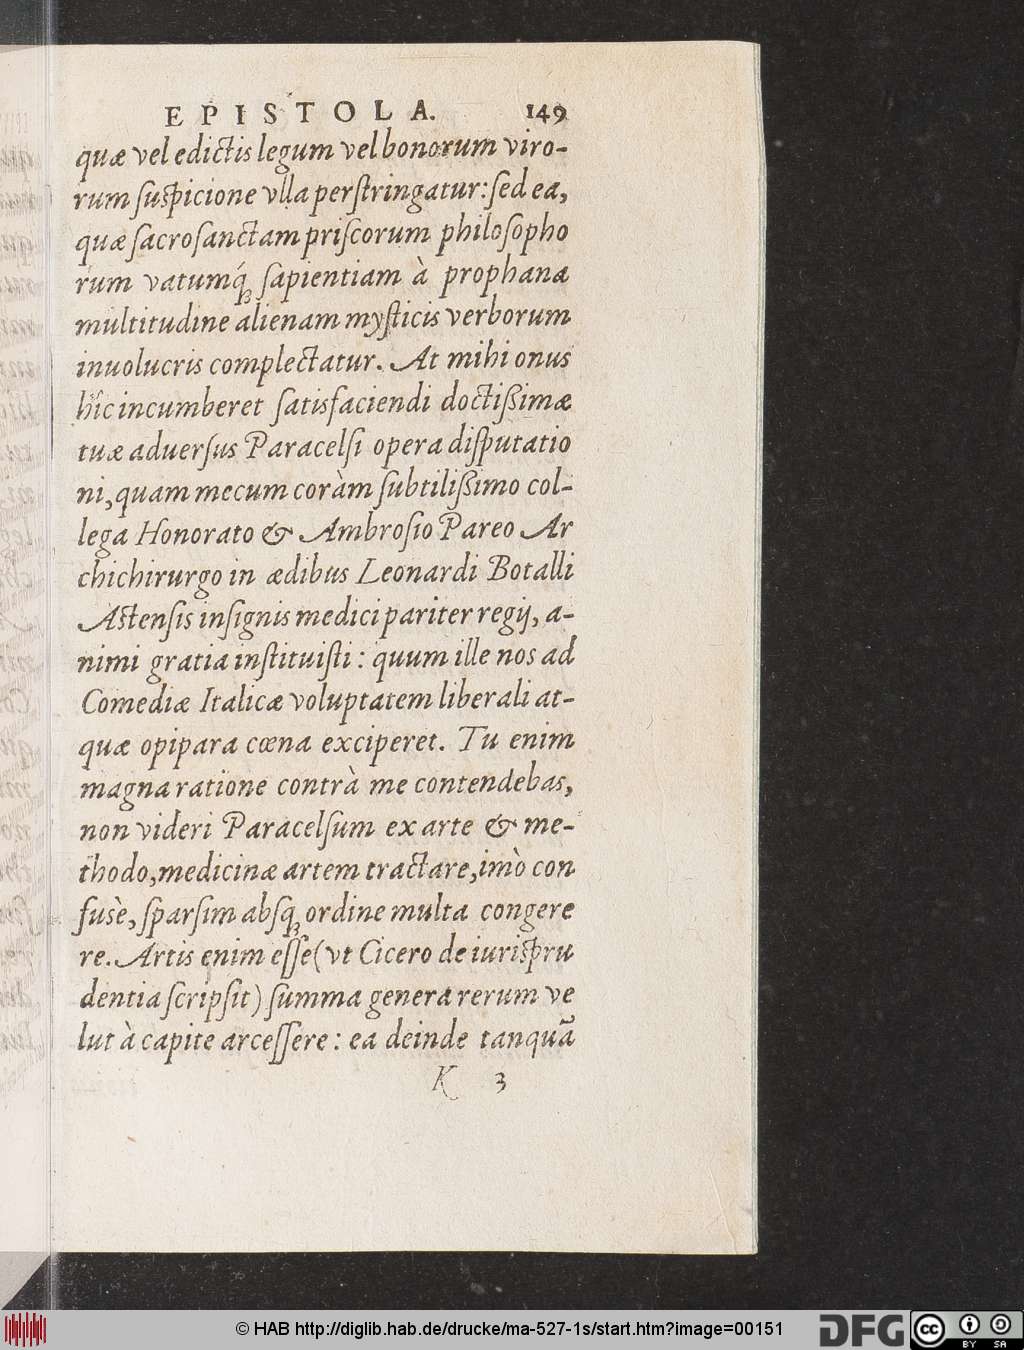 EPISTOLA. 149
quæ vel edictis legum vel bonorum viro-
rum ſuſpicione vlla perſtringatur: ſed ea,
quæ ſacroſanctam priſcorum philoſopho
rum vatumq́; ſapientiam à prophana
multitudine alienam myſticis verborum
inuolucris complectatur. At mihi onus
hîc incumberet ſatisfaciendi doctißimæ
tuæ aduerſus Paracelſi opera diſputatio
ni, quam mecum coràm ſubtilißimo col-
lega Honorato & Ambroſio Pareo Ar
chichirurgo in ædibus Leonardi Botalli
Aſtenſis inſignis medici pariter regij, a-
nimi gratia inſtituiſti: quum ille nos ad
Comediæ Italicæ voluptatem liberali at-
quæ opipara cœna exciperet. Tu enim
magna ratione contrà me contendebas,
non videri Paracelſum ex arte & me-
thodo, medicinæ artem tractare, imò con
fusè, ſparſim abſq; ordine multa congere
re. Artis enim eſſe (vt Cicero de iuriſpru
dentia ſcripſit) ſumma genera rerum ve
lut à capite arceſſere: ea deinde tanquã
K 3
© HAB http://diglib.hab.de/drucke/ma-527-1s/start.htm?image=00151
DFG
cc
BY SA